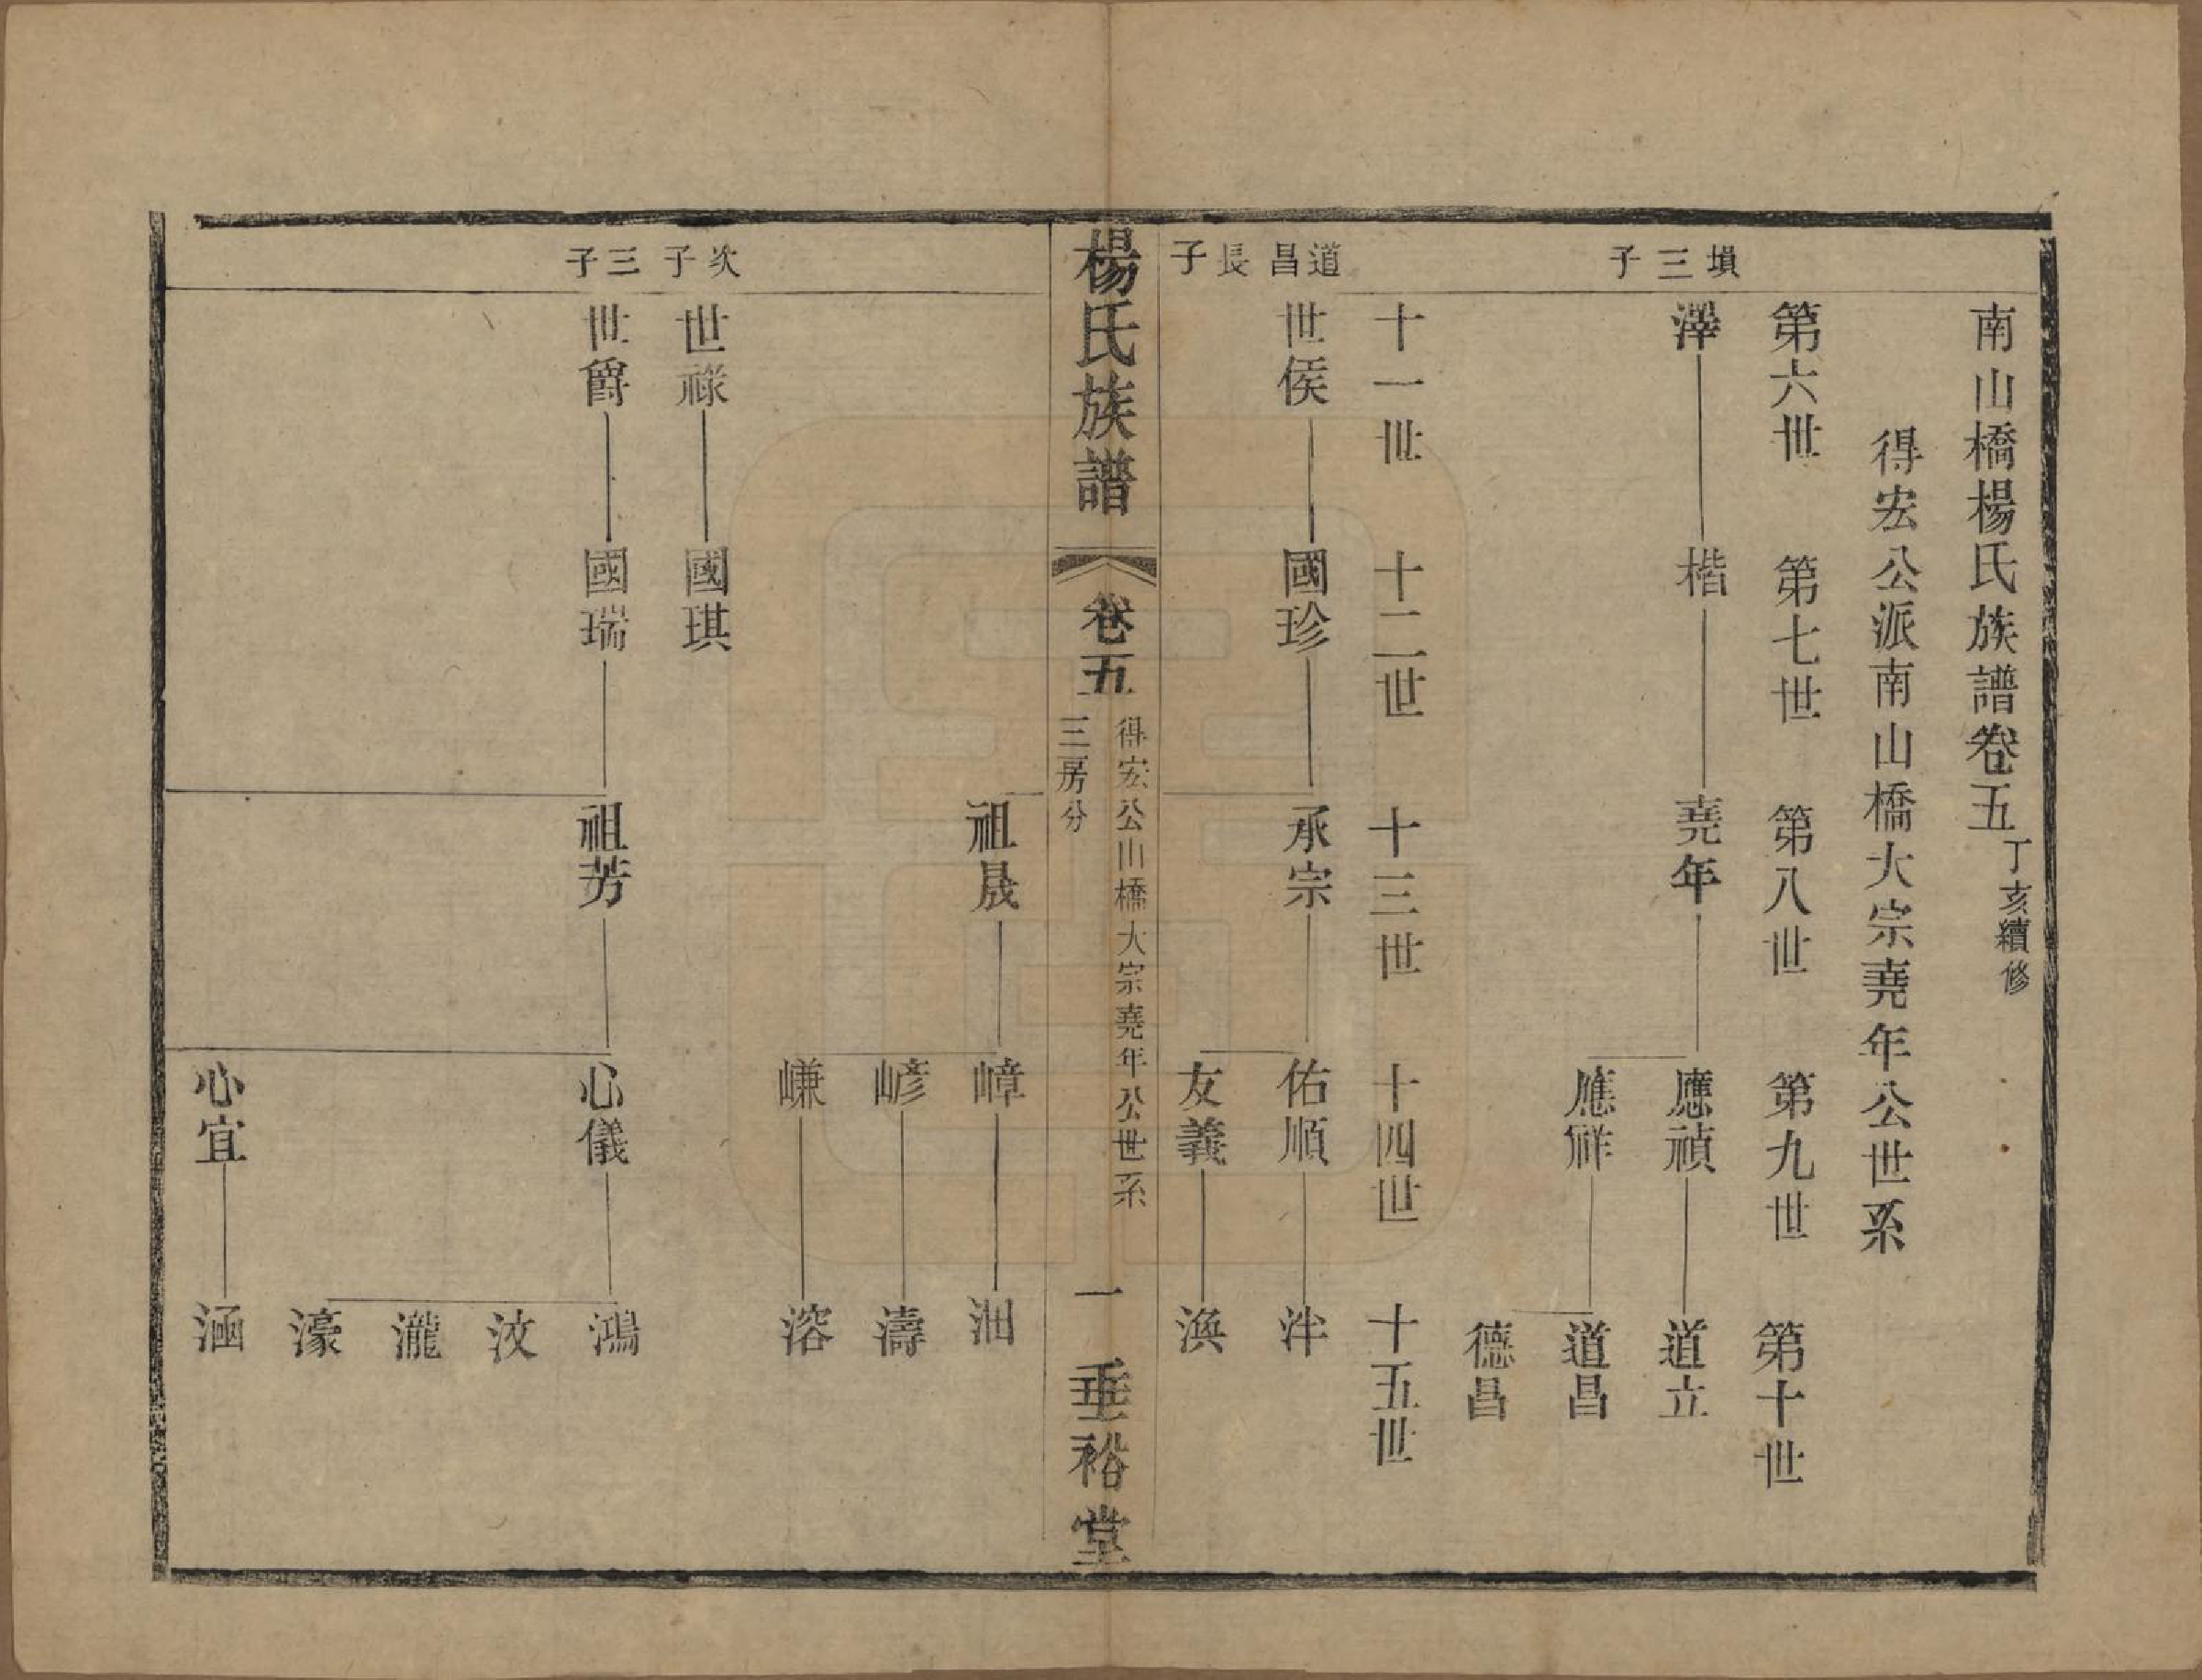 南山橋楊氏族譜卷五 丁亥續修
得宏公派南山橋大宗堯年公世系
第六世 第七世 第八世 第九世 第十世
塤三子
澤 楷 堯年 應禎 道立
應祥 道昌
德昌
十一世 十二世 十三世 十四世 十五世
道昌長子
世侯 國珍 承宗 佑順 泮
友義 渙
楊氏族譜 卷五 得宏公山橋大宗堯年公世系 三房分 一 垂裕堂
祖晟 嶂 泗
嵃 濤
嵰 溶
次子
世祿 國琪
三子
世爵 國瑞 祖芳 心儀 鴻
汶
瀧
濠
心宜 涵